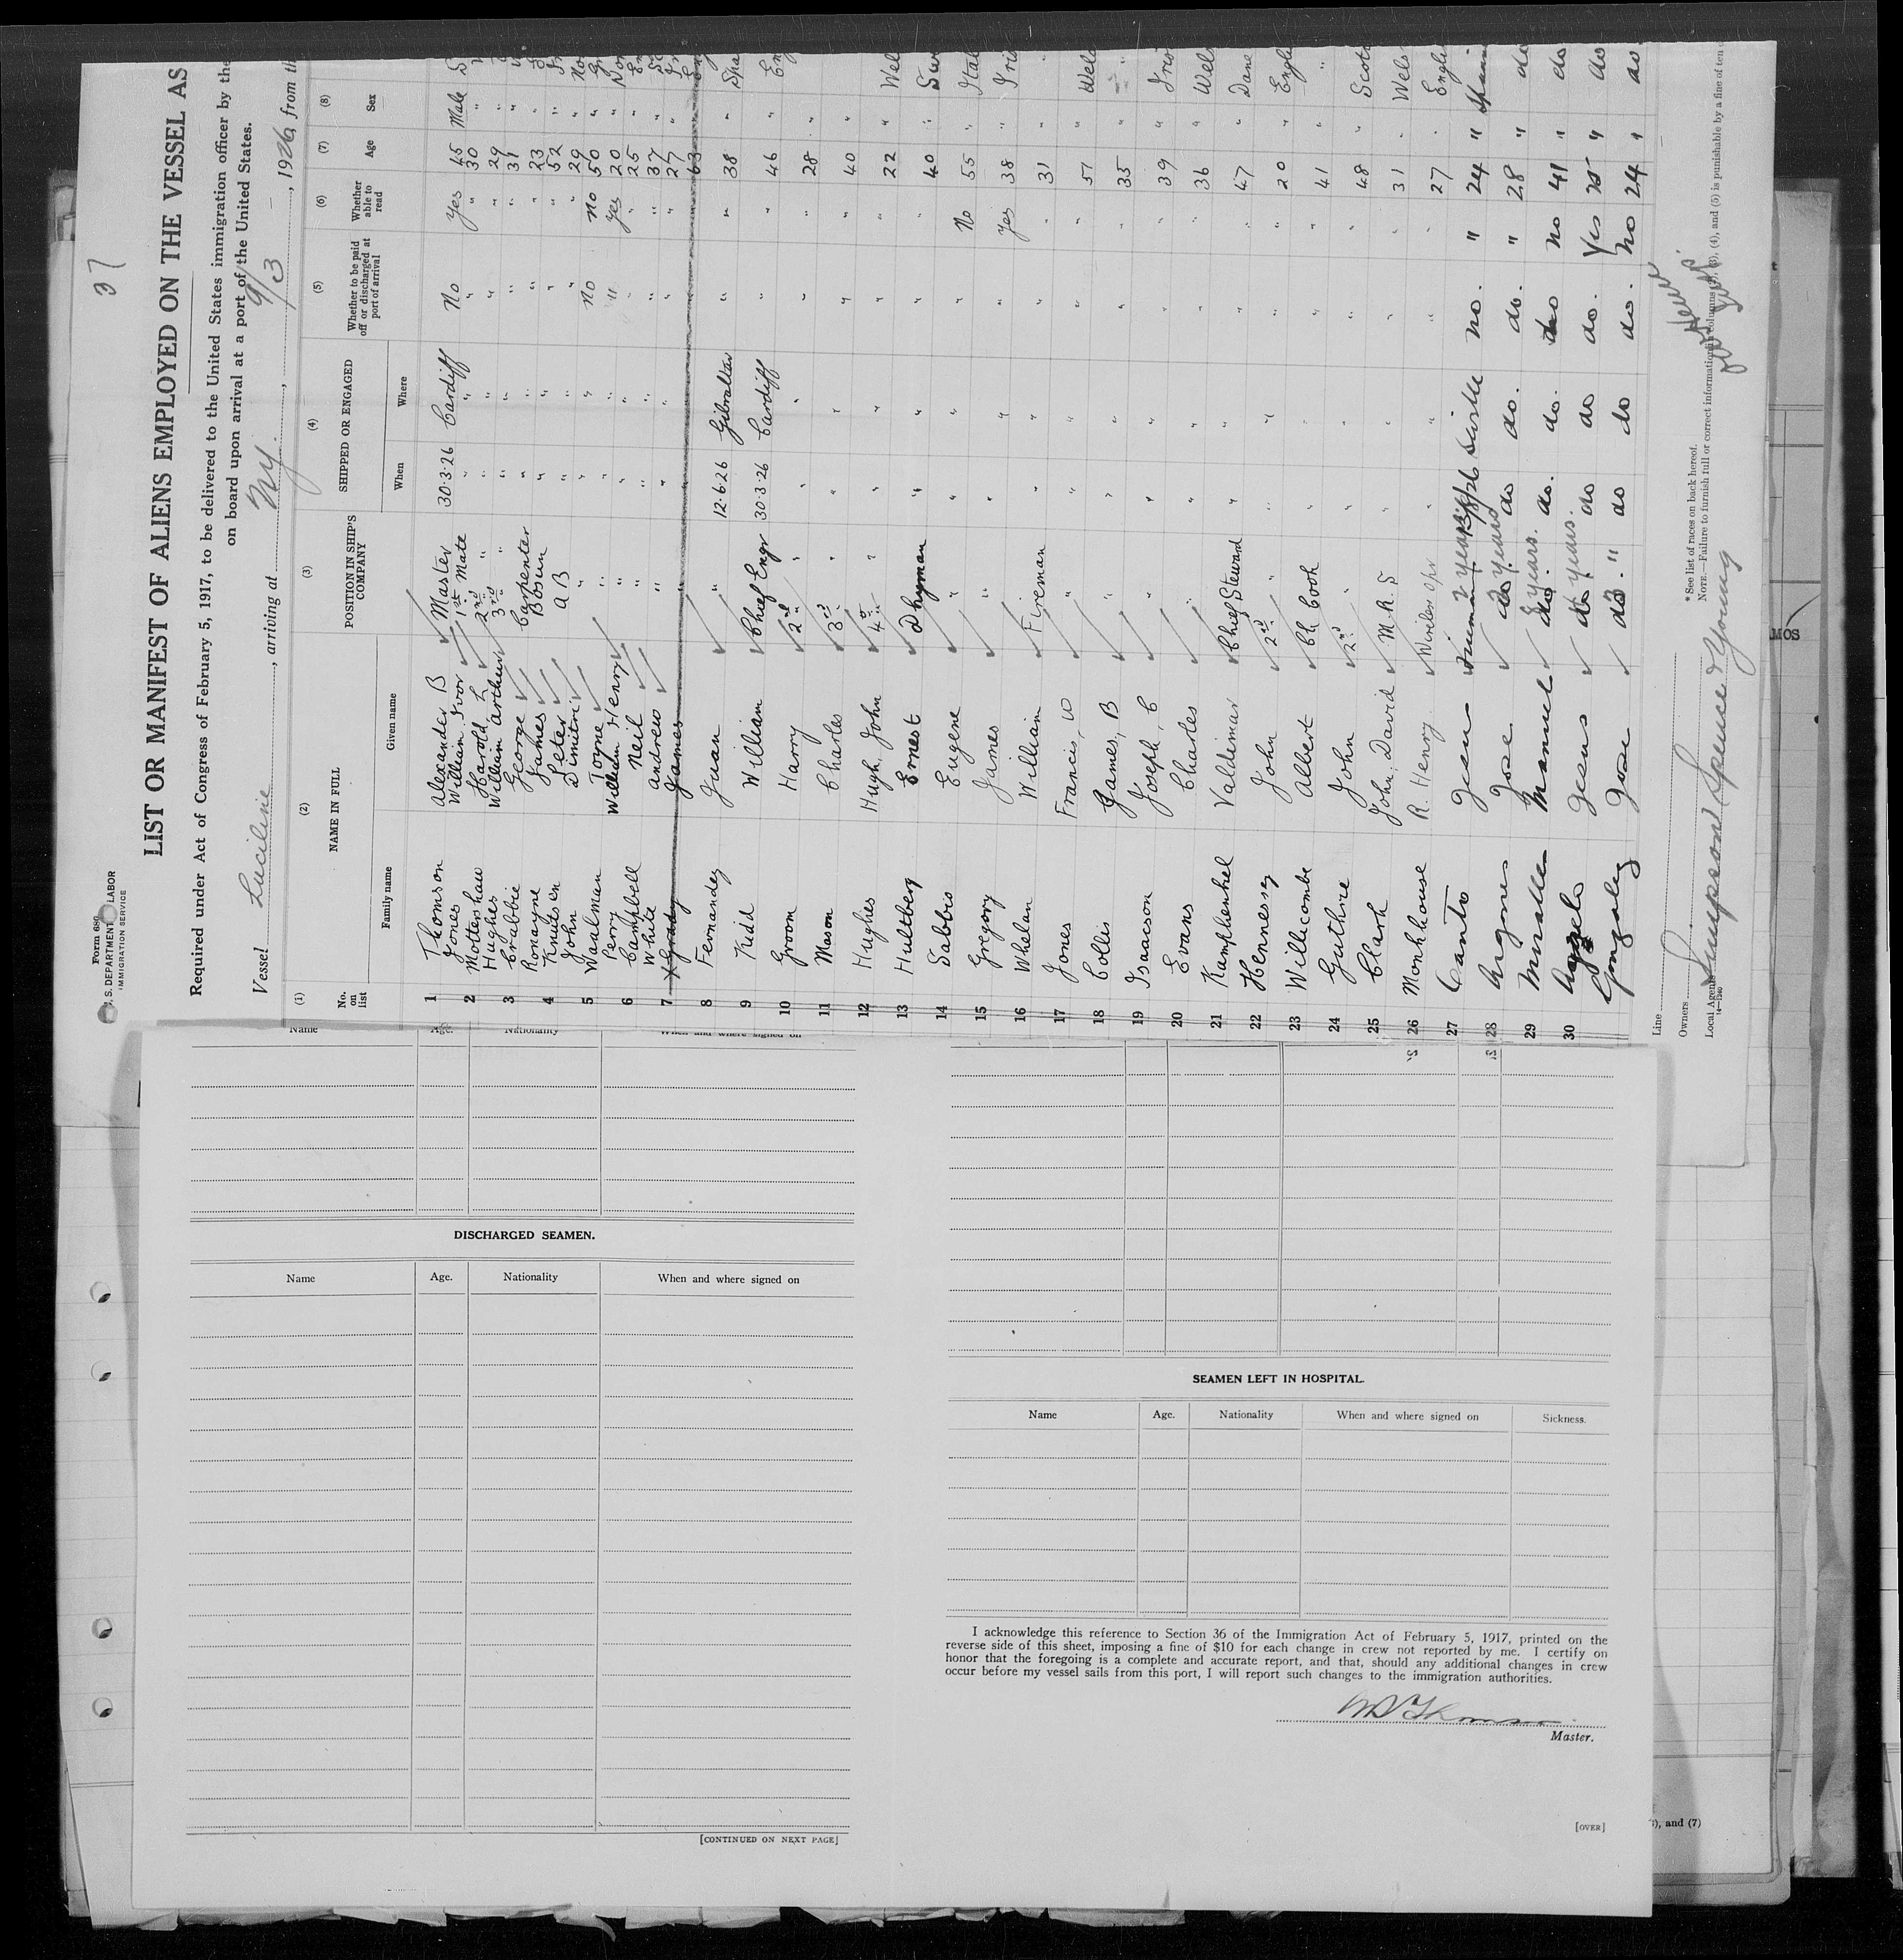 37
Form 689
U. S. DEPARTMENT OF LABOR
IMMIGRATION SERVICE
LIST OR MANIFEST OF ALIENS EMPLOYED ON THE VESSEL AS
Required under Act of Congress of February 5, 1917, to be delivered to the United States immigration officer by the
on board upon arrival at a port of the United States.
Vessel Luciline, arriving at N.Y., 9/3, 1926, from th
(1) (2) (3) (4) (5) (6) (7) (8)
No. on list NAME IN FULL POSITION IN SHIP'S COMPANY SHIPPED OR ENGAGED Whether to be paid off or discharged at port of arrival Whether able to read Age Sex
Family name Given name When Where
1 Thomson Alexander B Master 30·3·26 Cardiff No Yes 45 Male S
Jones William Ivor 1st Mate " " " " 30 "
2 Mottershaw Harold L 2nd " " " " " 29 "
Hughes William Arthur 3rd " " " " " 31 "
3 Crabbie George Carpenter " " " " 23 "
Ronayne James Bosun " " " " 52 "
4 Knutsen Peter A B " " " " 29 " No
John Dimitri " " " No No 50 "
5 Waalman Toyne " " " " Yes 20 " Nor
Perry William Henry " " " " " 25 " En
6 Campbell Neil " " " " " 37 " Sc
White Andrew " " " " " 27 "
7 Grady James " 63
8 Fernandez Juan " 12·6·26 Gibraltar " " 38 " Spa
9 Kidd William Chief Engr 30·3·26 Cardiff " " 46 " Eng
10 Groom Harry 2nd " " " " " 28 "
11 Mason Charles 3rd " " " " " 40 "
12 Hughes Hugh, John 4th " " " " " 22 " Wel
13 Hultberg Ernest Dkyman " " " " 40 " Swe
14 Sabbio Eugene " " " " No 55 " Ital
15 Gregory James " " " " Yes 38 " Iri
16 Whelan William Fireman " " " " 31 "
17 Jones Francis, W " " " " " 51 " Wels
18 Collis James, B " " " " " 35 " "
19 Isaacson Joseph, C " " " " " 39 " Iris
20 Evans Charles " " " " " 36 " Wels
21 Kamphenhel Valdimar Chief Steward " " " " 47 " Dane
22 Hennessy John 2nd " " " " " 20 " Engli
23 Willicombe Albert Ch Cook " " " " 41 " "
24 Guthrie John 2nd " " " " " 48 " Scots
25 Clark John, David M. R. S " " " " 31 " Wels
26 Monkhouse R. Henry Wireless Opr " " " " 27 " Engli
27 Canto Jean Seville no. " 24 " Spain
28 Argones Jose do years do do. do. " 28 " do
29 Manuel do. years. do. do. no 41 " do
30 Jeans do years. do do do. Yes 25 " do
Gonzalez Jose do. " do do do. no 24 " do
Line
Owners
Local Agents Simpson Spence & Young
* See list of races on back hereof.
NOTE.—Failure to furnish full or correct information in columns (3), (4), and (5) is punishable by a fine of ten
Name Age. Nationality When and where signed on
DISCHARGED SEAMEN.
Name Age. Nationality When and where signed on
[CONTINUED ON NEXT PAGE]
SEAMEN LEFT IN HOSPITAL.
Name Age. Nationality When and where signed on Sickness.
I acknowledge this reference to Section 36 of the Immigration Act of February 5, 1917, printed on the
reverse side of this sheet, imposing a fine of $10 for each change in crew not reported by me. I certify on
honor that the foregoing is a complete and accurate report, and that, should any additional changes in crew
occur before my vessel sails from this port, I will report such changes to the immigration authorities.
Thomson
Master.
[OVER]
), and (7)
MOS